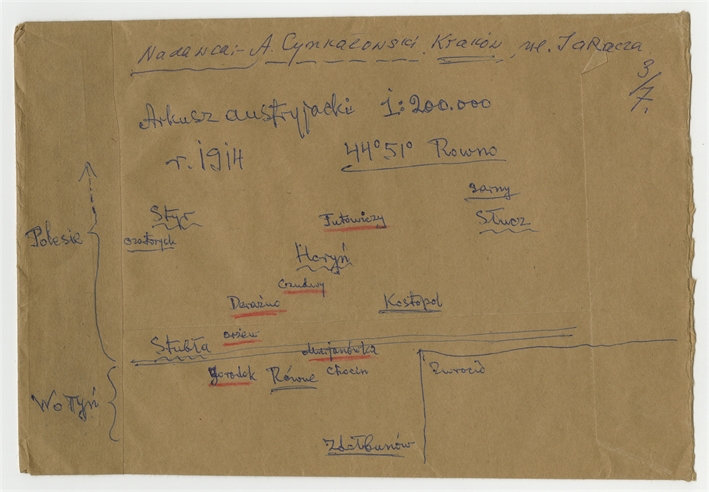 Nadawca:- A. Cynkałowski, Kraków, ul. Jaracza
3/7.
Arkusz austryjacki 1:200.000
r. 1914 44° 51° Rowno
Sarny
Styr Tutowiczy Słucz
czartorysk
Polesie
Horyń
Deraźno Kostopol
Stubła
Marjanówka
Gorodok Równe Chocin
Wołyń
Zdołbunów